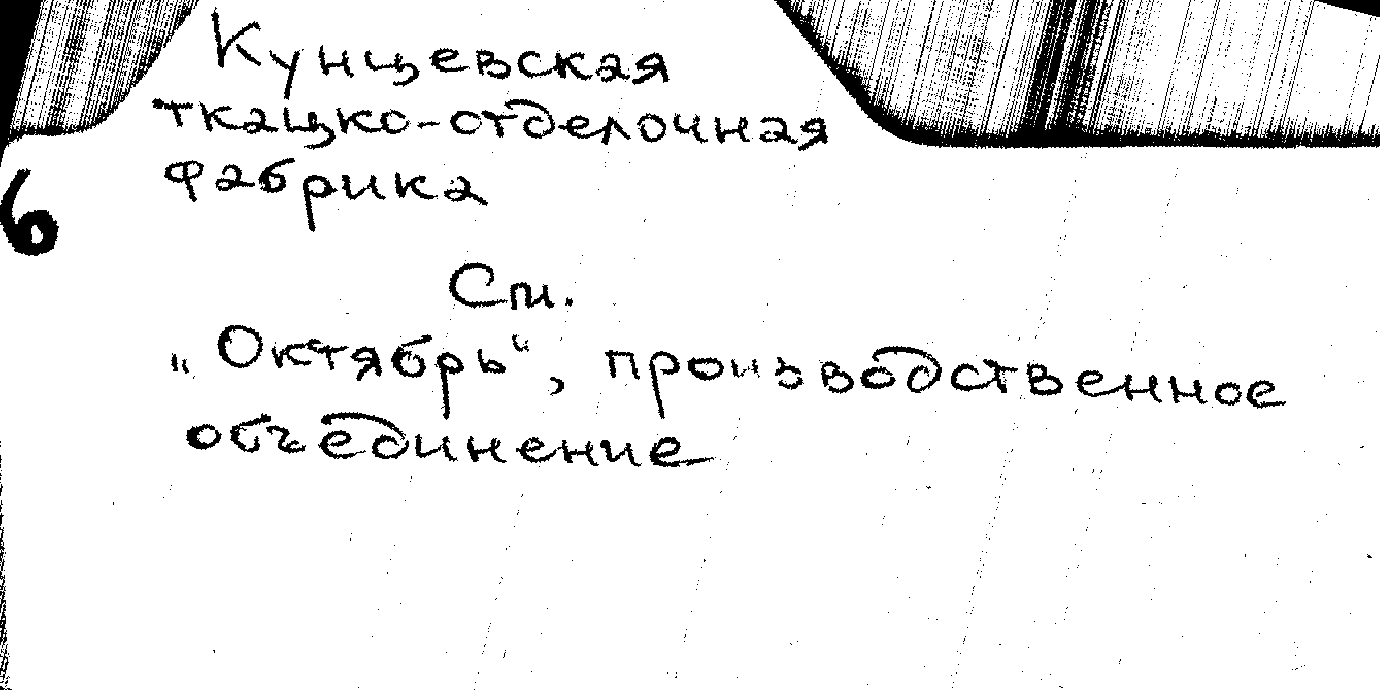 Кунцевская
ткацко-отделочная
фабрика
6
См.
„Октябрь“, производственное
объединение